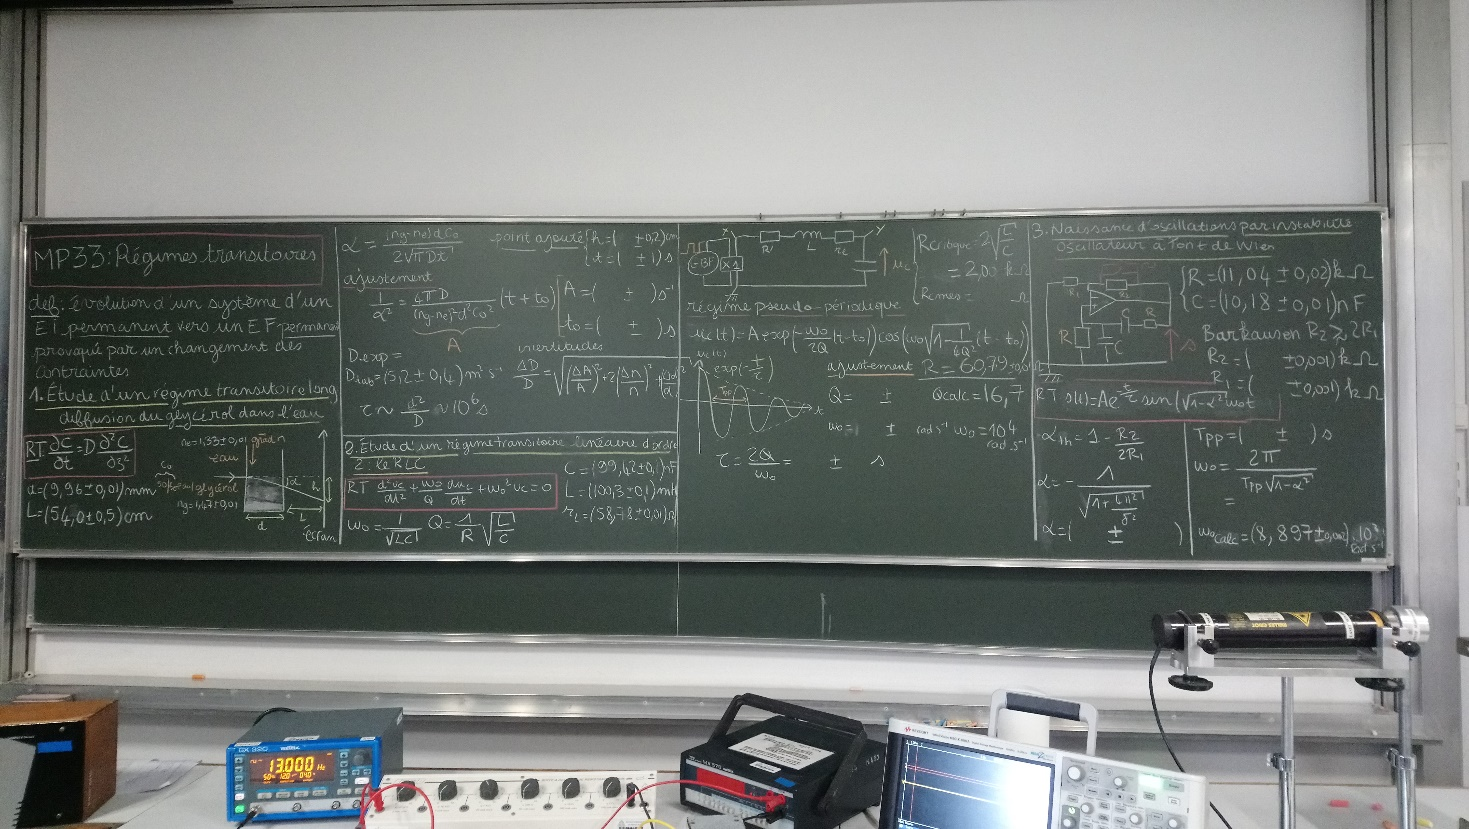 MP33: Régimes transitoires
def: évolution d'un système d'un
EI permanent vers un EF permanent
provoqué par un changement des
contraintes
1. Étude d'un régime transitoire long
diffusion du glycérol dans l'eau
RT ∂C/∂t = D ∂²C/∂z²
a=(9,96±0,01)mm
L=(54,0±0,5)cm
ne=1,33±0,01
eau
grad n
C0
glycérol
ng=1,47±0,01
α
h
d
L
écran
α = (ng-ne)dC0 / 2√πDt
point ajouré { h=( ±0,2)cm
t=( ±1)s
ajustement
1/α² = 4πD / (ng-ne)²d²C0² (t+t0)
A
A=( ± )s⁻¹
t0=( ± )s
Dexp=
incertitudes
Dtab=(5,2±0,4)m²s⁻¹
ΔD/D = √((ΔA/A)²+2(Δn/n)²+
τ ~ d²/D ~ 10⁶s
2. Étude d'un régime transitoire linéaire d'ordre
2: le RLC
RT d²uc/dt² + ω0/Q duc/dt + ω0²uc=0
ω0=1/√LC Q=1/R √L/C
C=(99,42±0,1)nF
L=(100,3±0,1)mH
rL=(58,78±0,01)Ω
GBF
X
×1
R
L
rL
Y
uc
Rcritique=2√L/C
=2,00 kΩ
Rmes= Ω
régime pseudo-périodique
uc(t)=A exp(-ω0/2Q (t-t0))cos(ω0√1-1/4Q² (t-t0))
uc(t)
exp(-t/τ)
Tpp
τ=2Q/ω0= ± s
ajustement
R=60,79
Q= ±
Qcalc=16,7
ω0= ± rad s⁻¹
ω0=10⁴ rad.s⁻¹
3. Naissance d'oscillations par instabilité
oscillateur à Pont de Wien
R1
R2
R
C
C
R
s
{ R=(11,04±0,02)kΩ
C=(10,18±0,01)nF
Barkausen R2 ≥ 2R1
R2=( ±0,001)kΩ
R1=( ±0,001)kΩ
RT s(t)=Ae sin(√1-α² ω0t
αth=1-R2/2R1
α=-1/√1+4π²/δ²
α=( ± )
Tpp=( ± )s
ω0=2π/Tpp√1-α²
=
ω0calc=(8,897±0,002).10³ rad s⁻¹
GX 320
13.000 Hz
KEYSIGHT